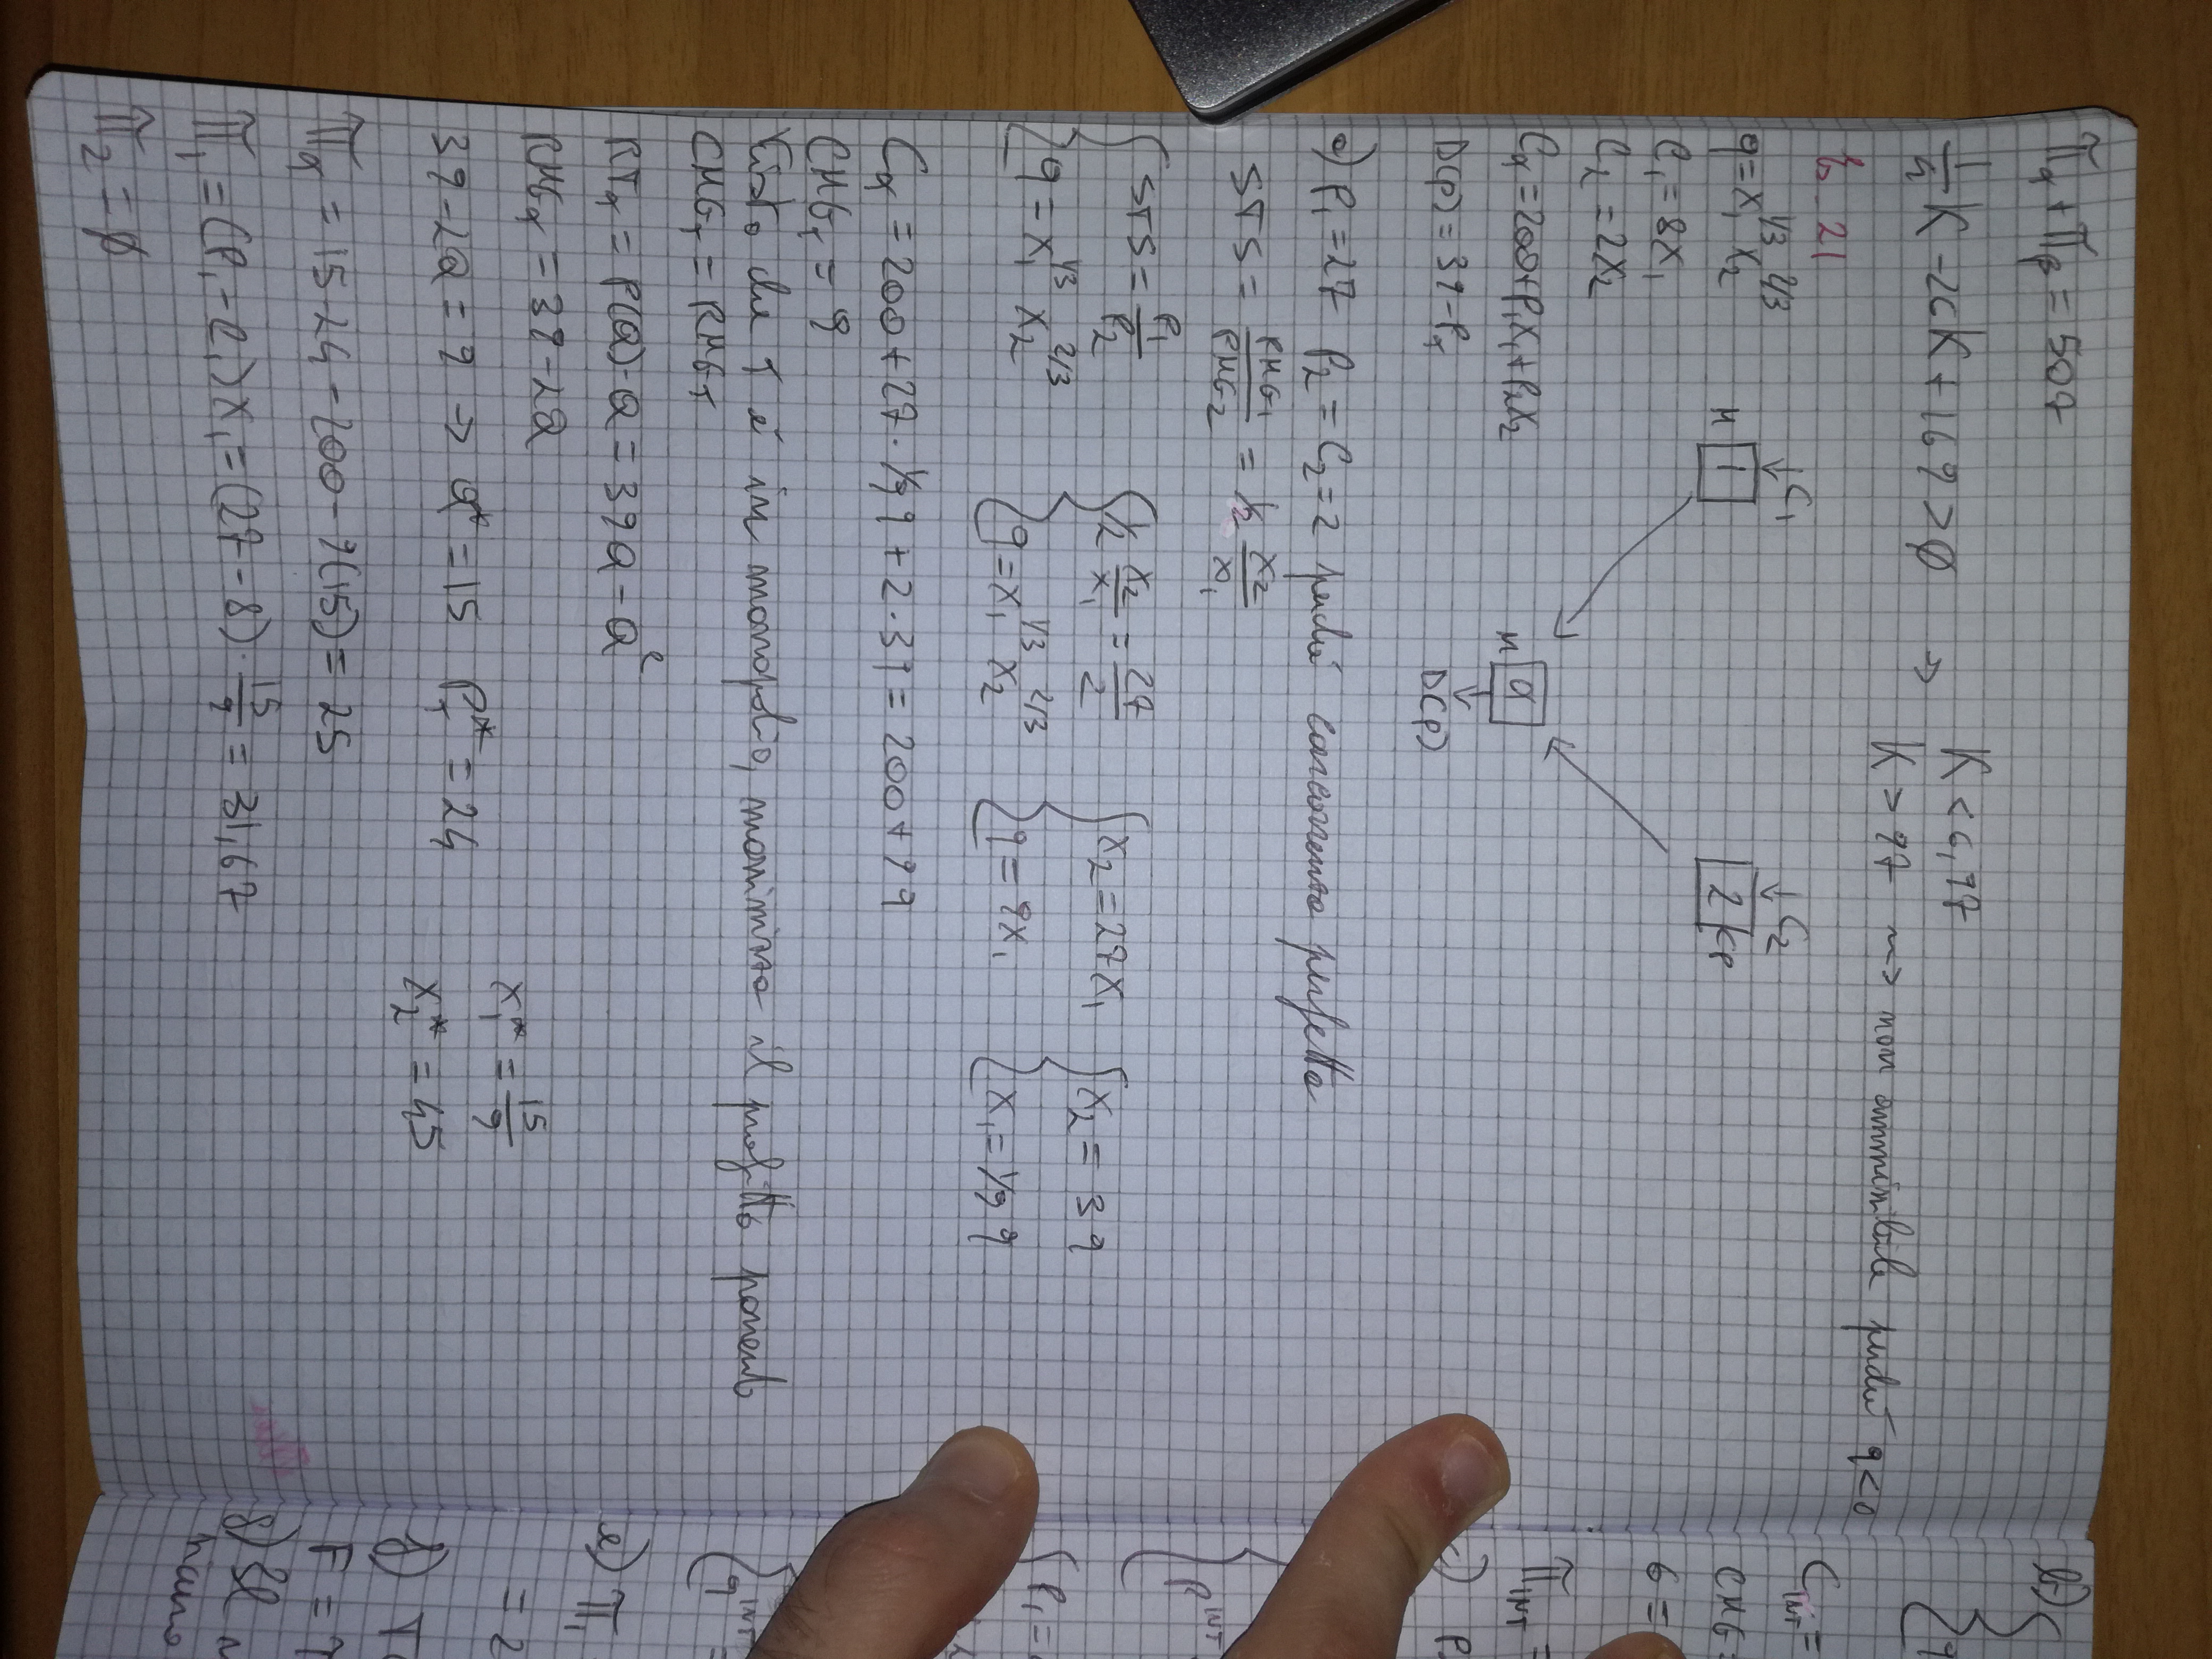 π_α + π_β = 507
1/4 K - 26K + 169 > 0 => K < 6,97
K > 97 ~> non ammissibile perché q<0
Es. 21
q = x_1^{1/3} x_2^{2/3}
↓C_1
↓C_2
M 1
2 CP
C_1 = 8x_1
C_2 = 2x_2
C_α = 200+P_1x_1+P_2x_2
M α
D(p) = 39-P_T
D(P)
a) P_1 = 27 P_2 = C_2 = 2 perché concorrenza perfetta
STS = PMG_1/PMG_2 = 1/2 x_2/x_1
{ STS = P_1/P_2
q = x_1^{1/3} x_2^{2/3}
{ 1/2 x_2/x_1 = 27/2
q = x_1^{1/3} x_2^{2/3}
{ x_2 = 27x_1
q = 9x_1
{ x_2 = 3q
x_1 = 1/9 q
C_α = 200+27·1/9 q + 2·3q = 200+9q
CMG_T = 9
Visto che T è in monopolio, massimizza il profitto ponendo
CMG_T = RMG_T
RT_α = P(Q)-Q = 39Q - Q^2
RMG_α = 39-2Q
39-2Q = 9 → Q* = 15 P_T* = 24
x_1* = 15/9
x_2* = 45
π_α = 15·24 - 200 - 9(15) = 25
π_1 = (P_1-C_1)x_1 = (27-8)·15/9 = 31,67
π_2 = 0
b)
C_INT =
CMG =
6 =
π_INT =
c) P
P^INT
P_1 =
q^INT =
e) π_1
= 2
f)
F =
g) Il